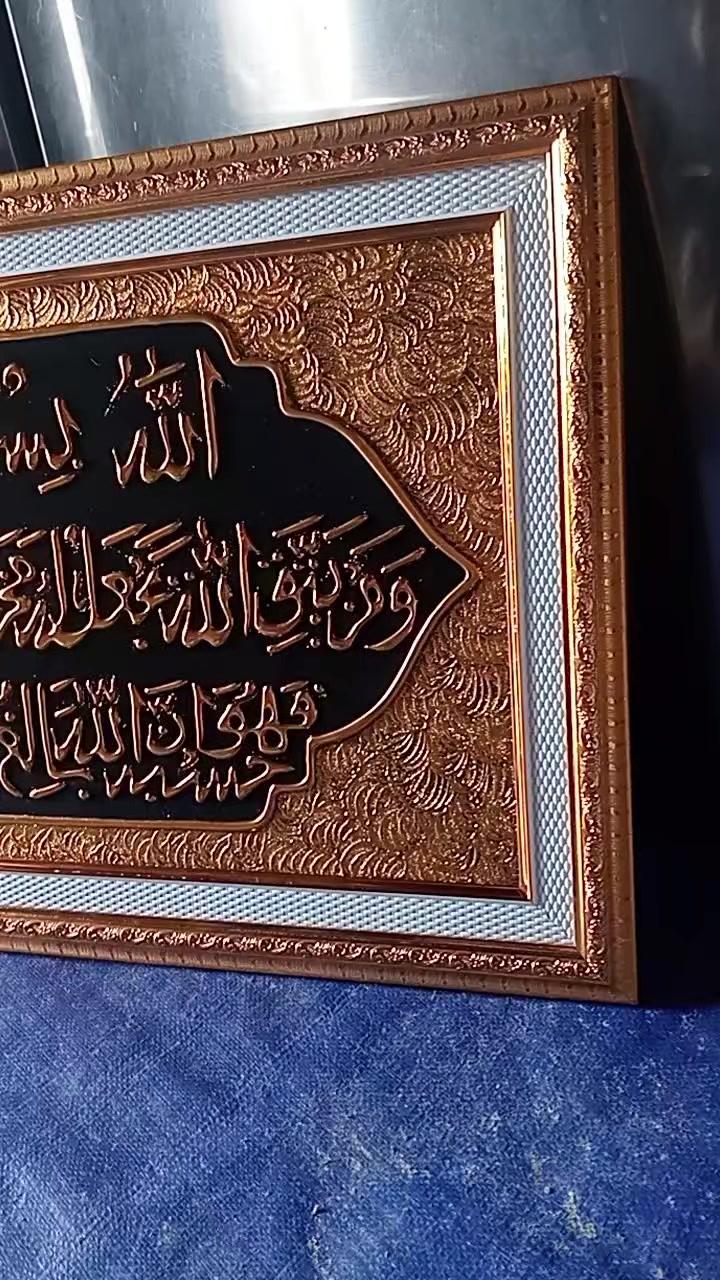 اللّٰه بِسْ
وَمَنْ يَتَّقِ اللّٰهَ يَجْعَلْ لَهُ
فَهُوَ حَسْبُهُ اِنَّ اللّٰهَ بَالِغُ